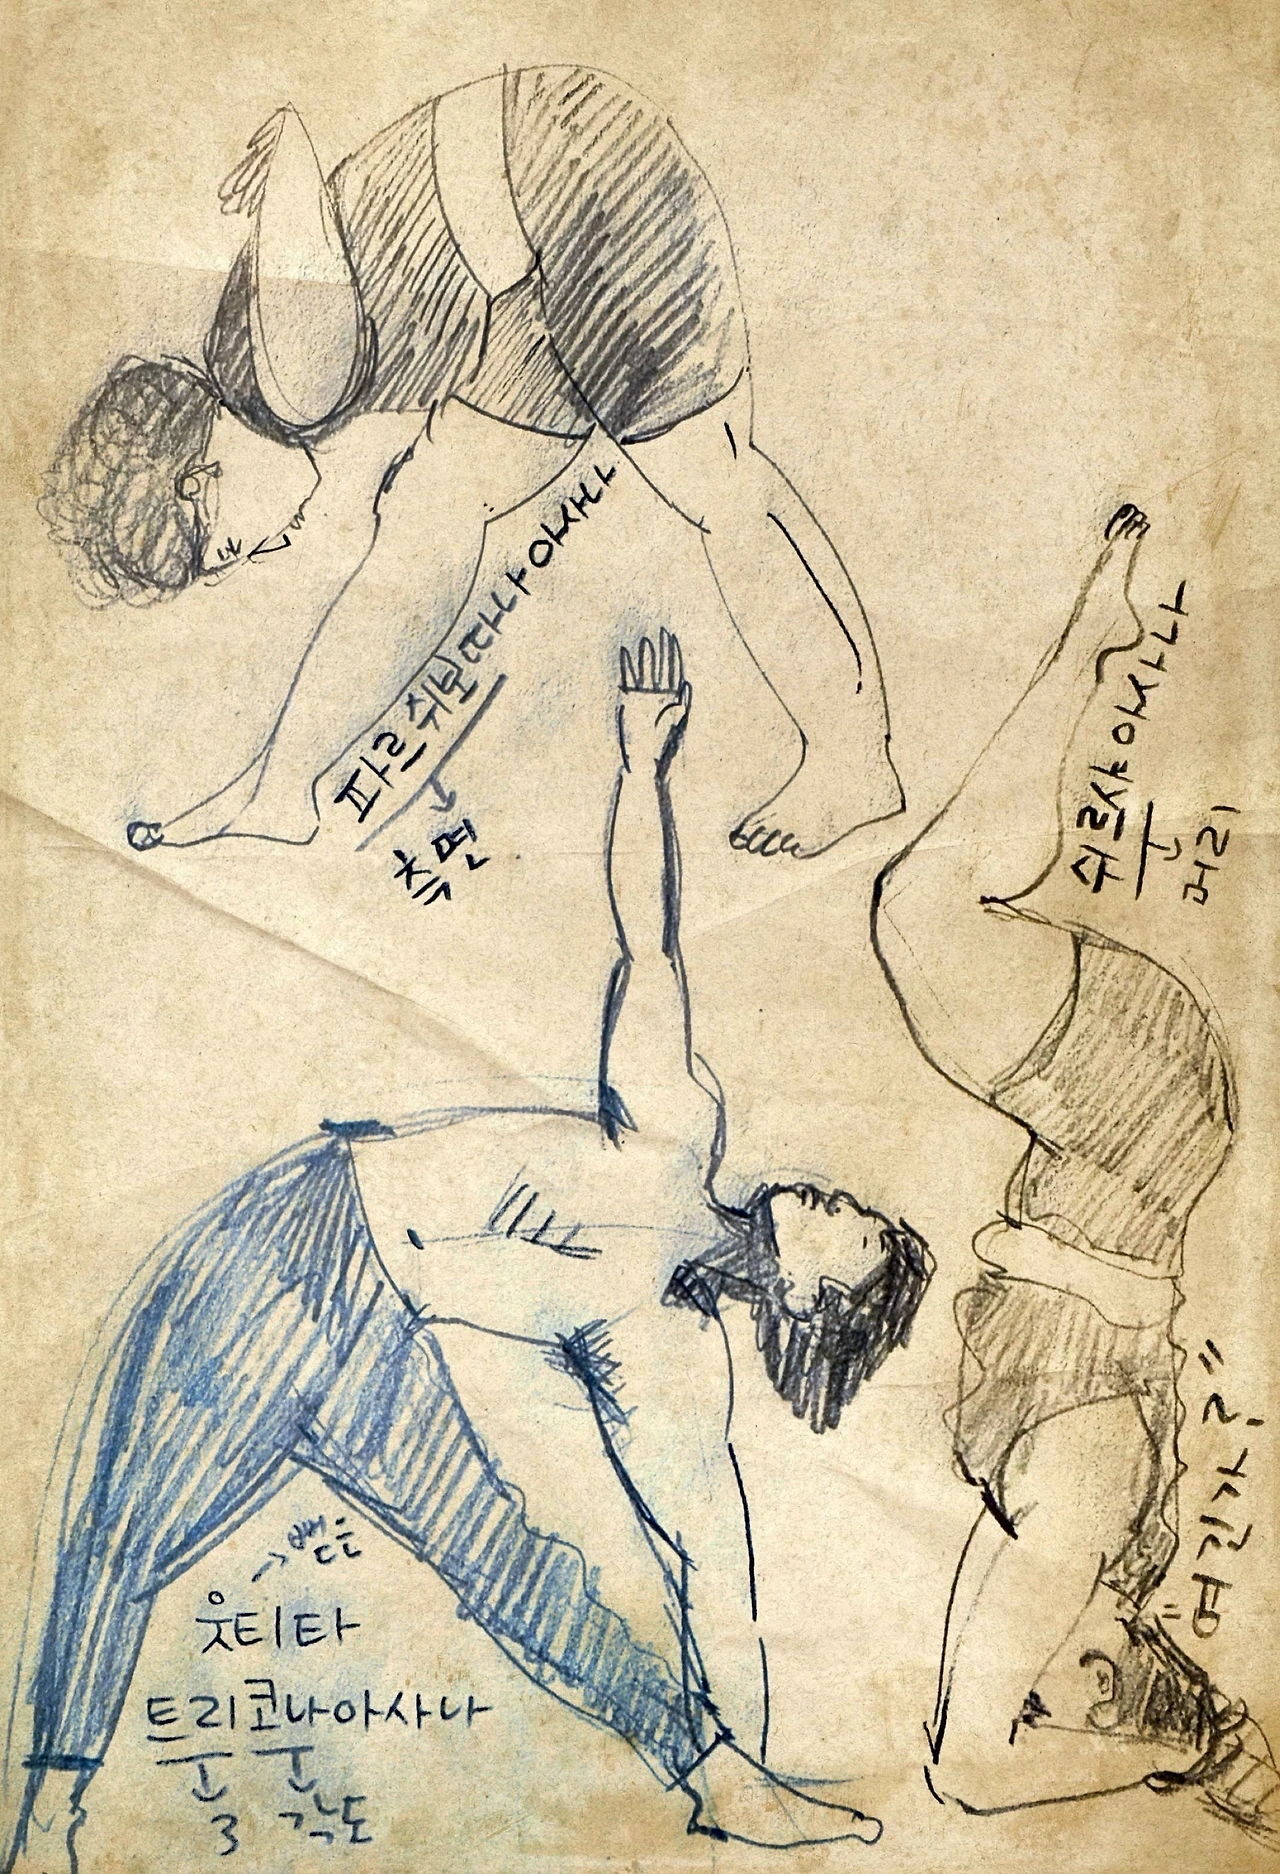 파르쉬보따나아사나
측면
쉬르샤아사나
머리
"여긴가?"
뻗은
웃티타
트리코나아사나
3 각도